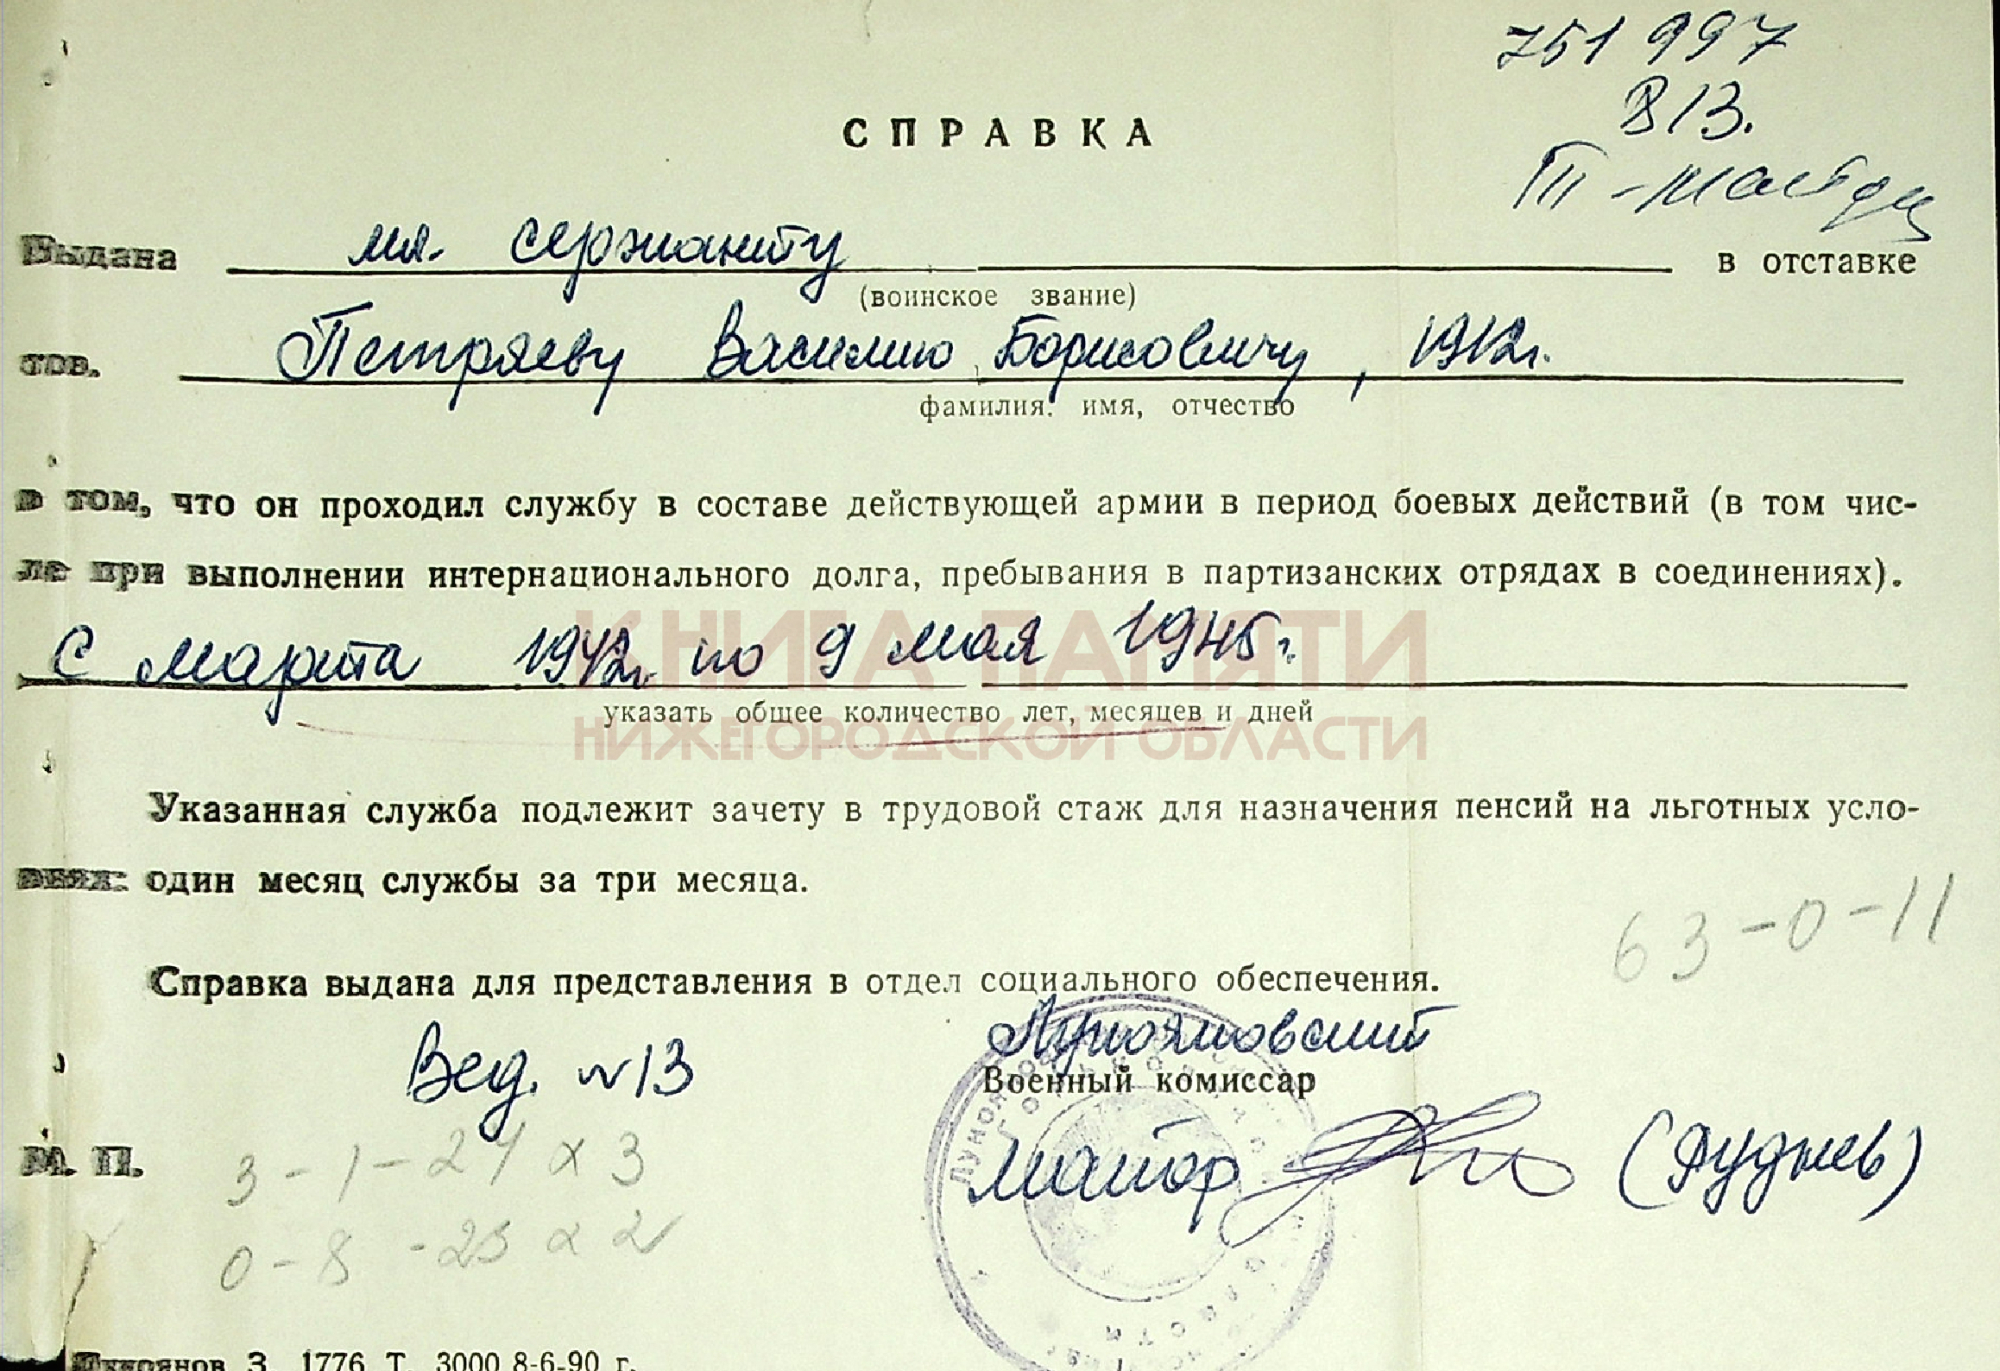 751997
813.
СПРАВКА
Выдана мл. сержанту в отставке
(воинское звание)
тов. Петряеву Василию Борисовичу, 1912г.
фамилия, имя, отчество
в том, что он проходил службу в составе действующей армии в период боевых действий (в том чис-
ле при выполнении интернационального долга, пребывания в партизанских отрядах в соединениях).
с марта 1942г. по 9 мая 1945г.
КНИГА ПАМЯТИ
указать общее количество лет, месяцев и дней
НИЖЕГОРОДСКОЙ ОБЛАСТИ
Указанная служба подлежит зачету в трудовой стаж для назначения пенсий на льготных усло-
виях: один месяц службы за три месяца.
63-0-11
Справка выдана для представления в отдел социального обеспечения.
Вед. №13
Лукояновский
Военный комиссар
М. П.
майор (Руднев)
3-1-24 х 3
0-8-23 х 2
Лукоянов З. 1776 Т. 3000 8-6-90 г.